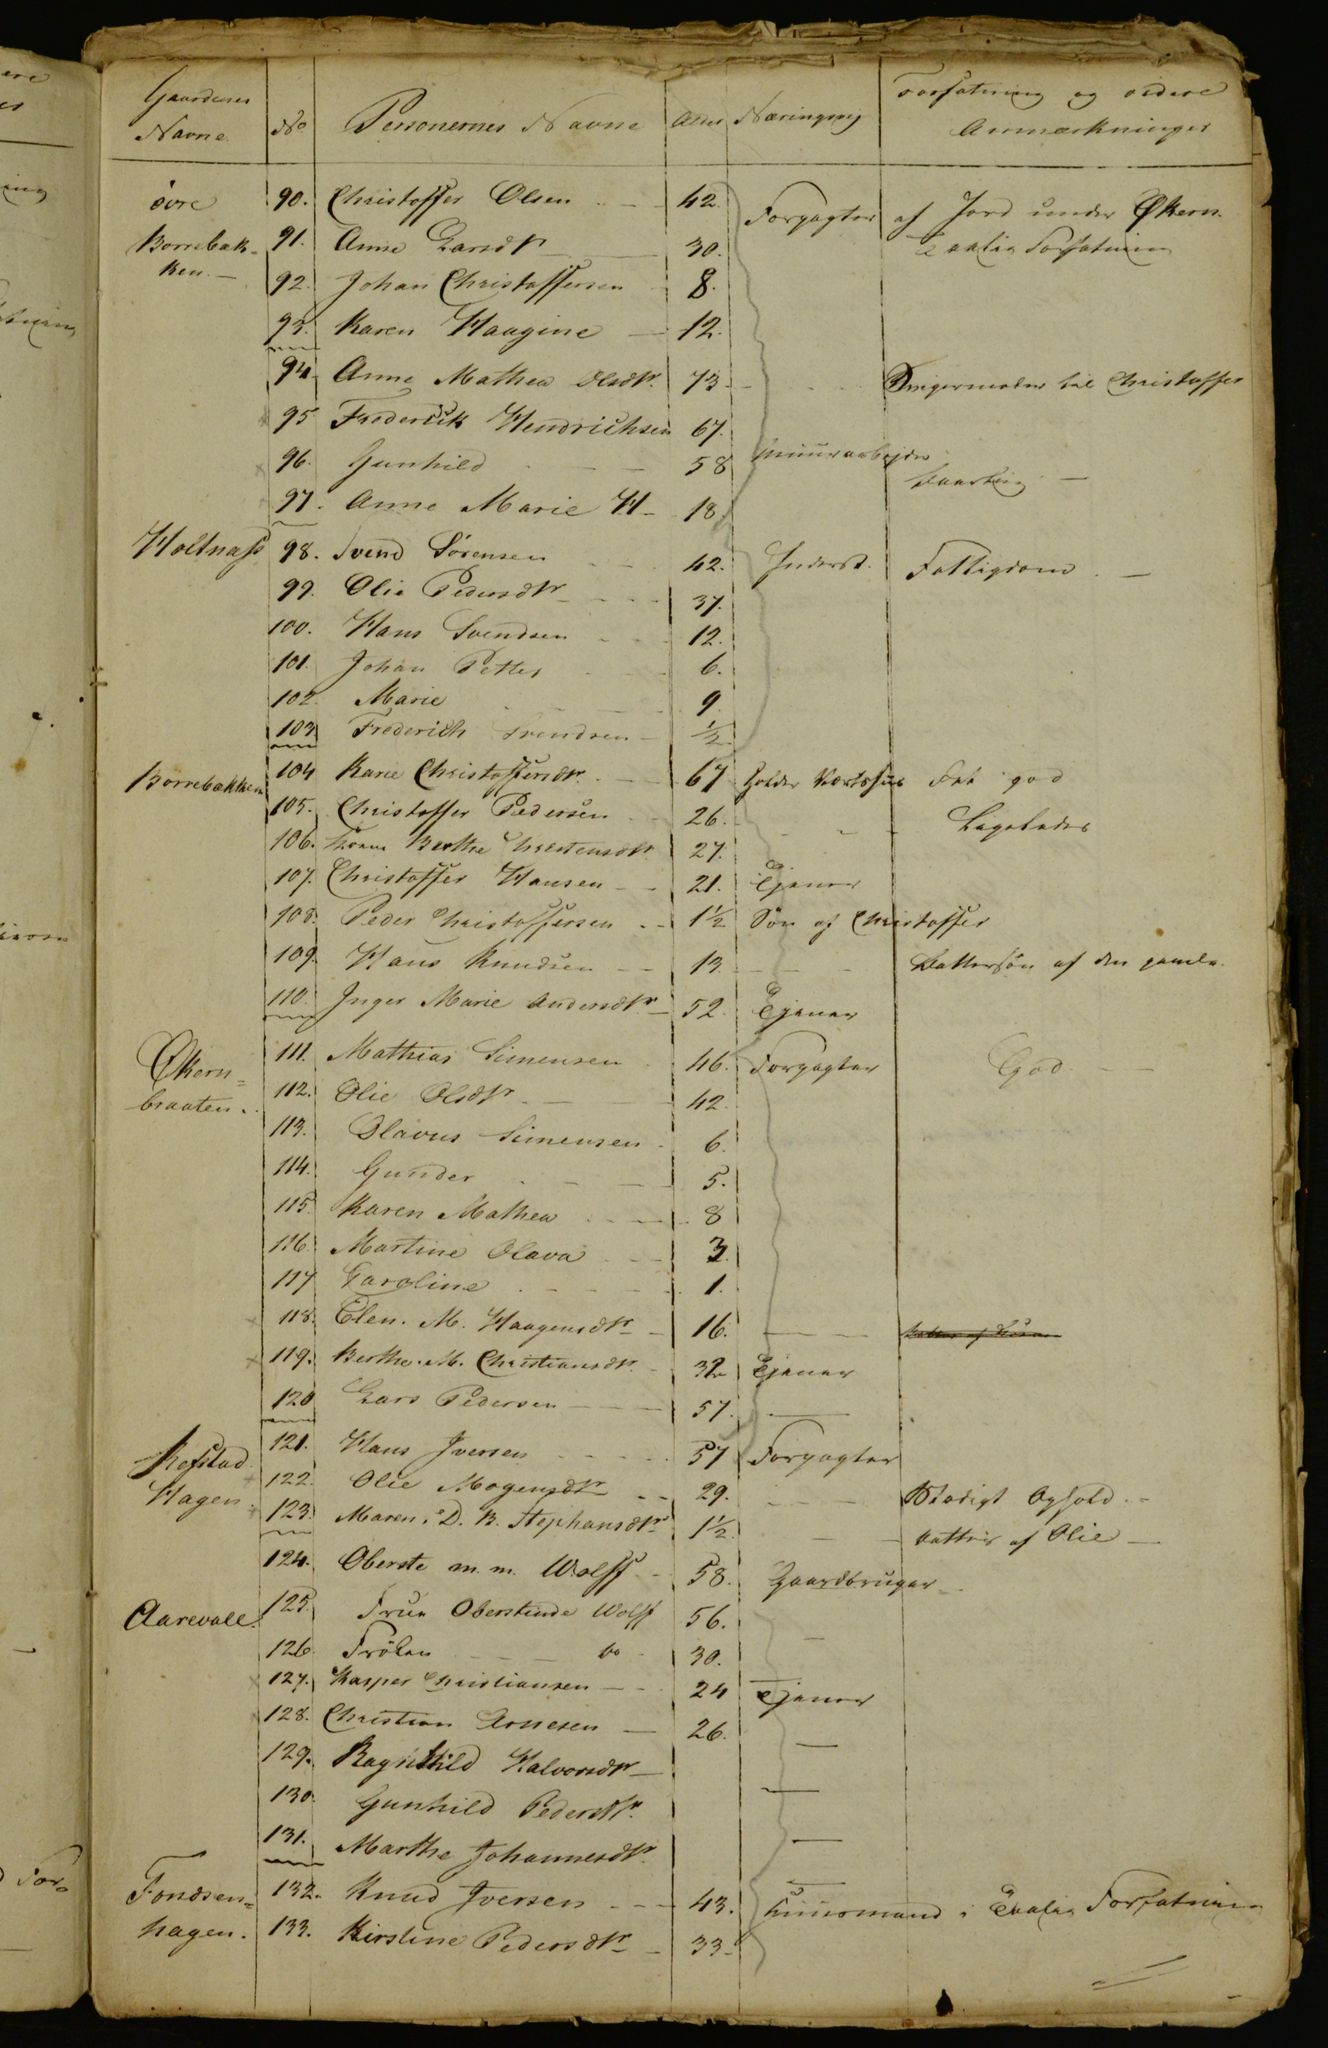 Gaardenes Navne No Personernes Navne Alder Næringsvej Forfatning og videre Anmærkninger
övre 90. Christoffer Olsen 42. Forpagter af Jord under Økern.
Borrebak- 91. Anne Larsdtr 30. Taalig Forfatning
ken. 92. Johan Christoffersen 8.
93. Karen Haagine 12.
94. Anne Mathea Olsdtr. 73 Svigermoder til Christoffer
95 Frederick Hendrichsen 67.
96. Gunhild 58 Muurarbejder Daarlig
97. Anne Marie H 18
Holtnass 98. Svend Sörensen 42. Inderst. Fattigdom
99. Olia Pedersdtr 37.
100. Hans Svendsen 12.
101. Johan Petter 6.
102. Marie 9
103 Frederich Svendsen 1/2
Borrebakken 104 Karie Christoffersdtr. 67 Holder Værtshus god
105. Christoffer Pedersen 26.
106. Berthe 27.
107. Christoffer Hansen 21. Tjener
108. Peder Christoffersen 1 1/2 Sön af Christoffer
109. Hans Knudsen 13 Dattersön af den gamle.
110. Inger Marie Andersdtr. 52. Tjener
Økern= 111. Mathias Simensen 46. Forpagter God
braaten. 112. Olie Olsdtr 42
113. Olavus Simensen 6.
114. Gunder 5.
115. Karen Mathea 8
116. Martine Olava 3
117 Caroline 1.
118. Elen. M. Haagensdtr 16.
119. Berthe. M. Christiansdtr. 32 Tjener
120 Lars Pedersen 57.
Refstad 121. Hans Iversen 57 Forpagter
Hagen 122. Olie Mogensdtr 29. Stadigt Ophold
123. Maren. D. B. Stephansdtr 1 1/2 Datter af Olie
124. Oberste m. m. Wolff 58. Gaardbruger
Aarevold. 125. Frue Oberstinde Wolff 56.
126. Fröken do 30.
127. Kasper Christiansen 24 Tjener
128. Christian Arnesen 26.
129. Ragnhild Halvorsdtr
130. Gunhild Pedersdtr.
131. Marthe Johannesdtr.
Fondsen= 132. Knud Iversen 43. Huusmand i Taalig Forfatning
hagen. 133. Kirstine Pedersdtr 33